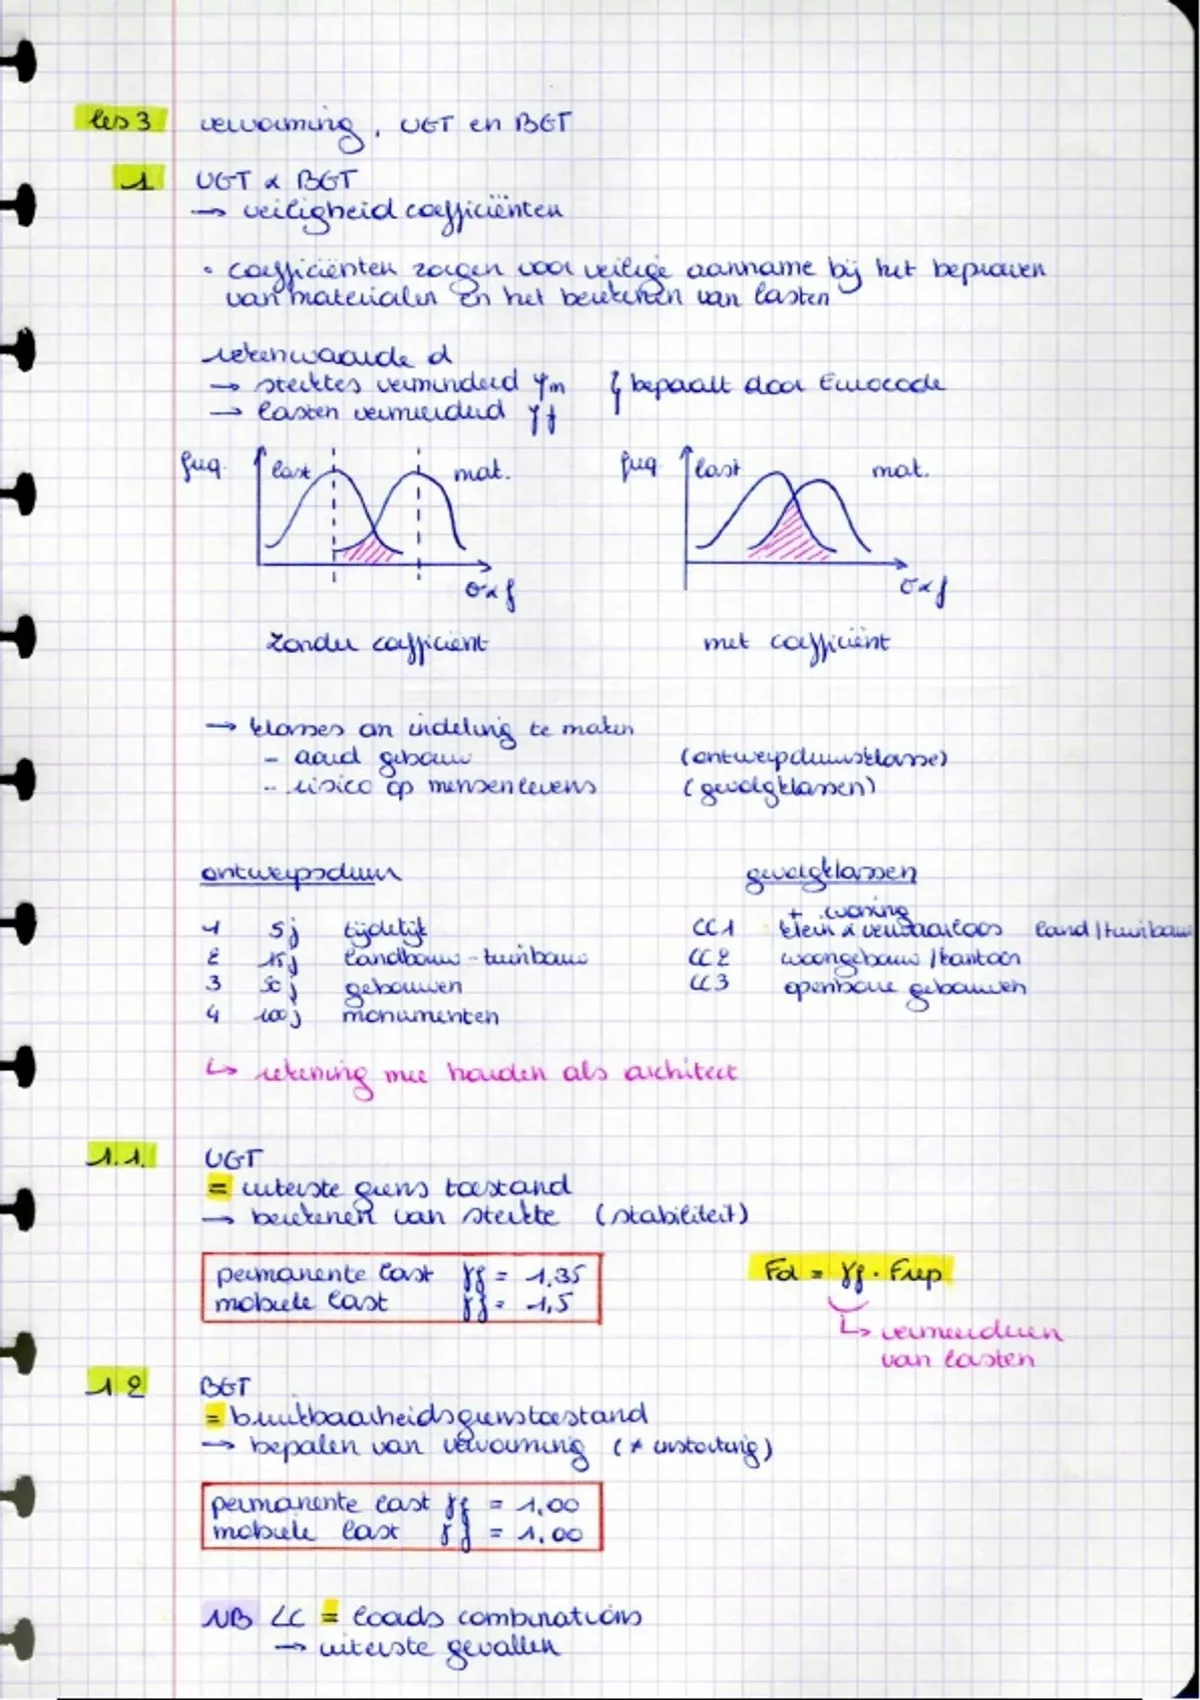 les 3 vervorming, UGT en BGT
1 UGT & BGT
→ veiligheid coëfficiënten
• coëfficiënten zorgen voor veilige aanname bij het beproeven
van materialen en het berekenen van lasten
rekenwaarde d
→ sterktes verminderd γm } bepaalt door Eurocode
→ lasten vermeerderd γf
freq. last mat. freq last mat.
σ & f σ & f
zonder coëfficiënt met coëfficiënt
→ klasses om indeling te maken
- aard gebouw (ontwerpduursklasse)
- risico op mensenlevens (gevolgklassen)
ontwerpsduur gevolgklassen
+ woning
1 5j tijdelijk CC1 klein & verwaarloos land/tuinbouw
2 15j landbouw - tuinbouw CC2 woongebouw / kantoor
3 50j gebouwen CC3 openbare gebouwen
4 100j monumenten
↳ rekening mee houden als architect
1.1. UGT
= uiterste grens toestand
→ berekenen van sterkte (stabiliteit)
permanente last γf = 1,35 Fd = γf . Frep
mobiele last γf = 1,5
↳ vermeerderen
van lasten
1 2 BGT
= bruikbaarheidsgrenstoestand
→ bepalen van vervorming (≠ instorting)
permanente last γf = 1,00
mobiele last γf = 1,00
NB LC = loads combinations
→ uiterste gevallen